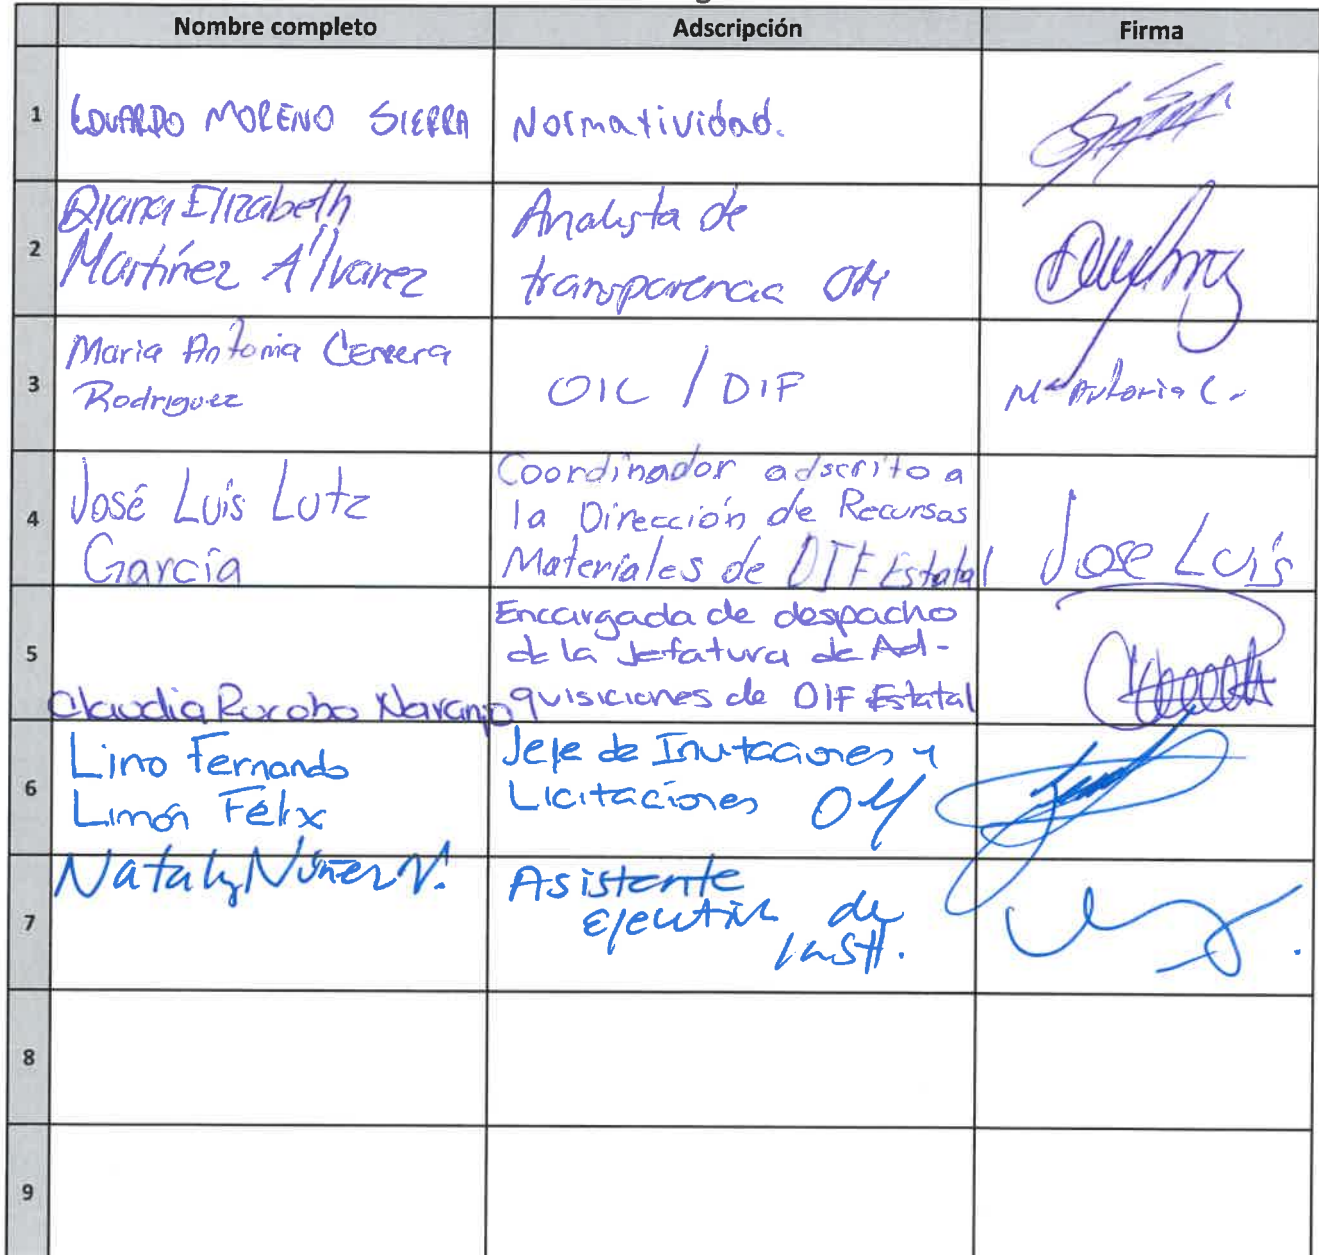 Nombre completo Adscripción Firma
1 EDUARDO MORENO SIERRA Normatividad.
2 Diana Elizabeth
Martínez Álvarez
Analista de
transparencia OM
3 Maria Antonia Cervera
Rodriguez
OIC / DIF
Mª Antonia C.
4 José Luis Lutz
García
Coordinador adscrito a
la Dirección de Recursos
Materiales de DIF Estatal
Jose Luis
5 Claudia Naranjo
Encargada de despacho
de la Jefatura de Ad-
quisiciones de DIF Estatal
6 Lino Fernando
Limón Félix
Jefe de Invitaciones y
Licitaciones OM
7 Nataly Núñez V.
Asistente
de
8
9